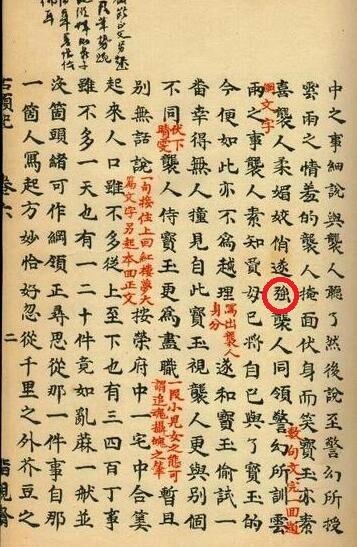 中之事細說與襲人聽了然後說至警幻所授
雲雨之情羞的襲人掩面伏身而笑寶玉亦素
喜襲人柔媚姣俏遂強襲人同領警幻所訓雲
數句文完一回題
綱文字
雨之事襲人素知賈母已將自己與了寶玉的
今便如此亦不為越理
寫出襲人
身分
遂和寶玉偷試一
番幸得無人撞見自此寶玉視襲人更與別個
不同
伏下
晴雯
襲人侍寶玉更為盡職
一段小兒女之態可
謂追魂攝魄之筆
暫且
別無話說
一句接住上回紅樓夢大
篇文字另起本回正文
按榮府中一宅中合算
起來人口雖不多從上至下也有三四百丁事
雖不多一天也有一二十件竟如亂蔴一般並
沒個頭緒可作綱領正尋思從那一件事自那
一個人寫起方妙恰好忽從千里之外芥豆之
石頭記 卷六 二 脂硯齋